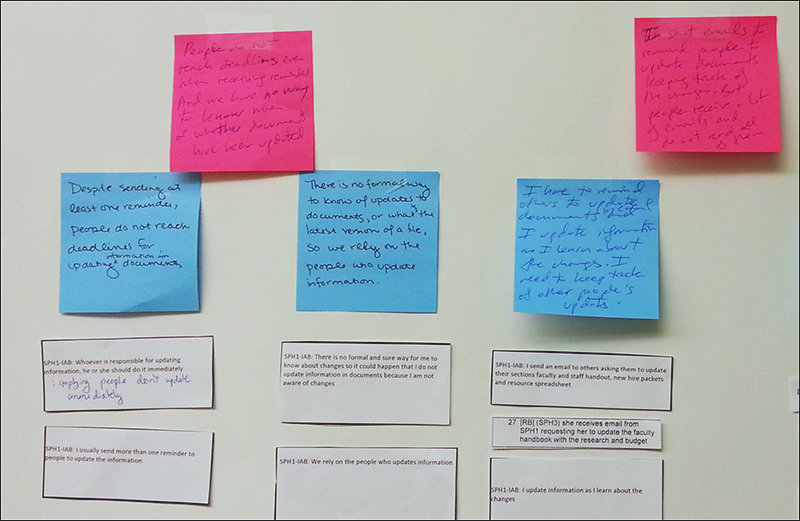 People do not
reach deadlines even
when receiving reminders
And we have no way
to know when
or whether documents
have been updated
sent emails to
remind people to
update documents
keeping track of
the changes. But
people receive a lot
of emails and
do not read all
of them
Despite sending at
least one reminder,
people do not reach
deadlines for
updating information in
documents
There is no formal way
to know of updates to
documents, or what's the
latest version of a file,
so we rely on the
people who update
information.
I have to remind
others to update
documents and
I update information
as I learn about
the changes. I
need to keep track
of other people's
updates.
SPH1-IAB: Whoever is responsible for updating
information, he or she should do it immediately
: implying people don't update
immediately
SPH1-IAB: There is no formal and sure way for me to
know about changes so it could happen that I do not
update information in documents because I am not
aware of changes
SPH1-IAB: I send an email to others asking them to update
their sections faculty and staff handout, new hire packets
and resource spreadsheet
27 [RB] (SPH3) she receives email from
SPH1 requesting her to update the faculty
handbook with the research and budget
SPH1-IAB: I usually send more than one reminder to
people to update the information
SPH1-IAB: We rely on the people who updates information
SPH1-IAB: I update information as I learn about the
changes